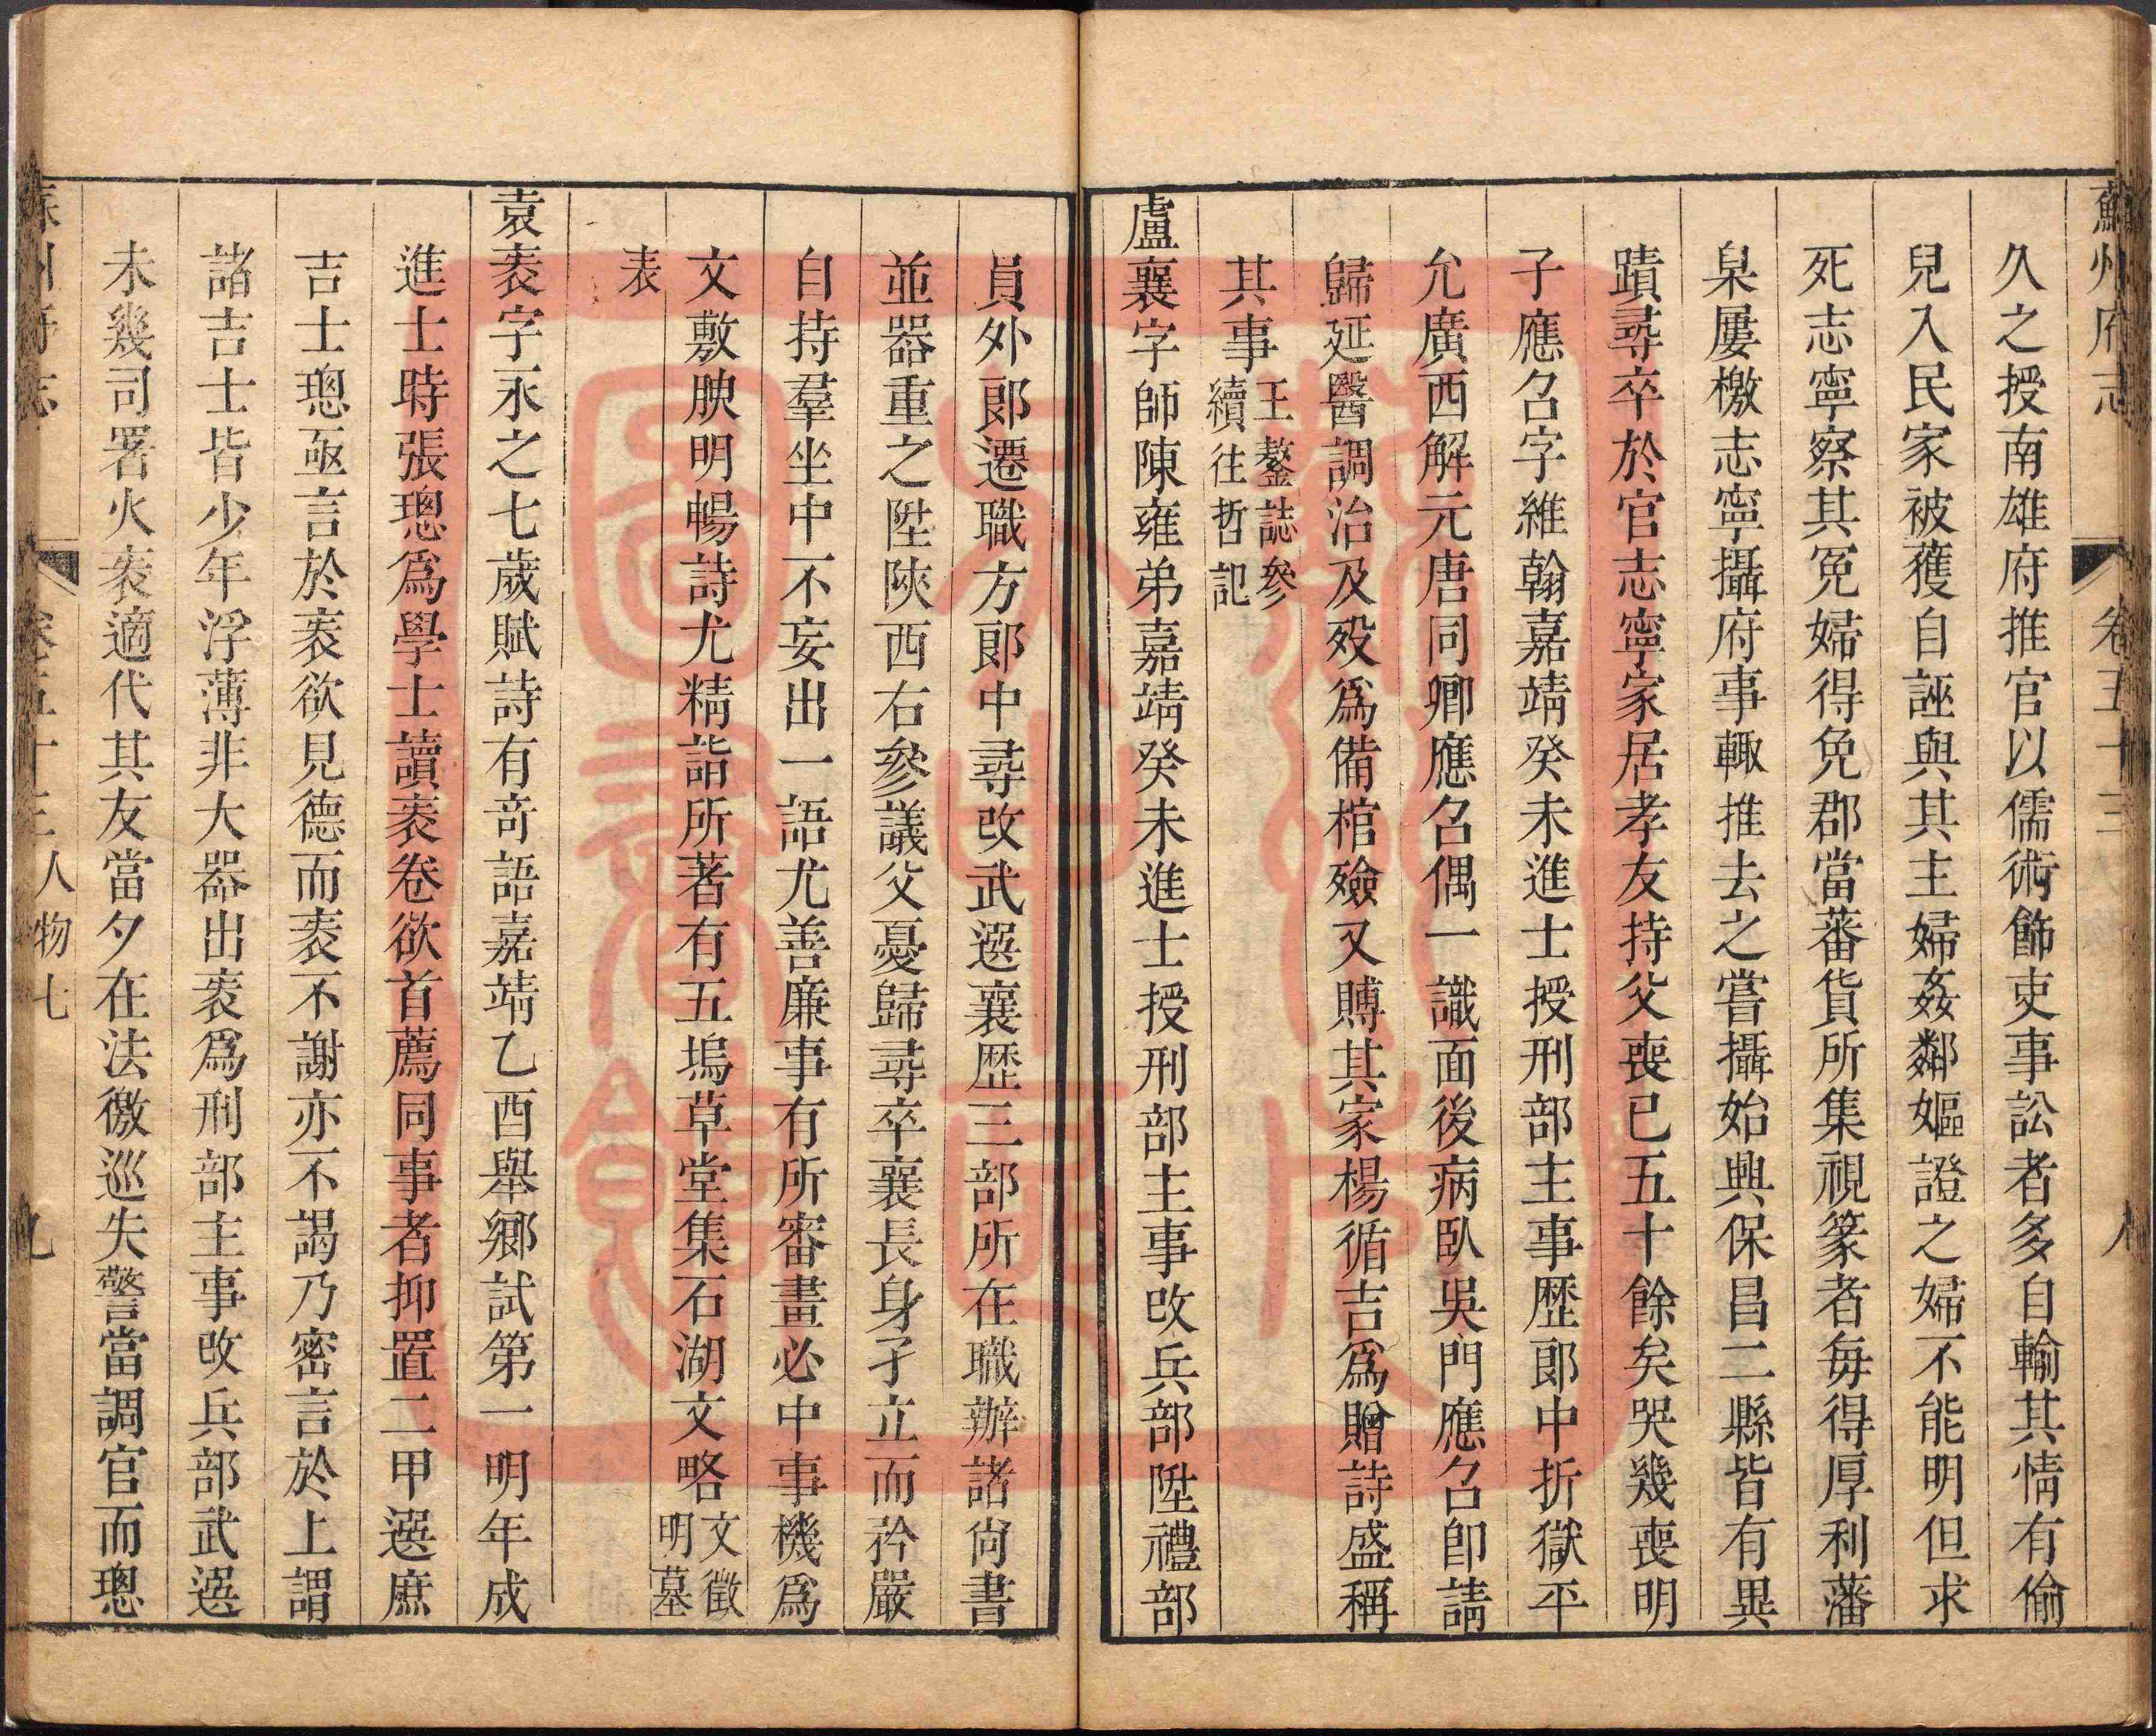 蘇州府志 卷五十三 八
久之授南雄府推官以儒術飾吏事訟者多自輸其情有偷
兒入民家被獲自誣與其主婦姦鄰嫗證之婦不能明但求
死志寧察其冤婦得免郡當蕃貨所集視篆者每得厚利藩
臬屢檄志寧攝府事輙推去之嘗攝始興保昌二縣皆有異
蹟尋卒於官志寧家居孝友持父喪已五十餘矣哭幾喪明
子應召字維翰嘉靖癸未進士授刑部主事歷郎中折獄平
允廣西解元唐同卿應召偶一識面後病臥吳門應召卽請
歸延醫調治及歿爲備棺殮又賻其家楊循吉爲贈詩盛稱
其事王鏊誌參續往哲記
盧襄字師陳雍弟嘉靖癸未進士授刑部主事改兵部陞禮部
員外郎遷職方郎中尋改武選襄歷三部所在職辦諸尚書
並器重之陞陝西右參議父憂歸尋卒襄長身孑立而矜嚴
自持羣坐中不妄出一語尤善廉事有所審畫必中事機爲
文敷腴明暢詩尤精詣所著有五塢草堂集石湖文略文徵明墓
表
袁袠字永之七歲賦詩有奇語嘉靖乙酉舉鄉試第一明年成
進士時張璁爲學士讀袠卷欲首薦同事者抑置二甲選庶
吉士璁亟言於袠欲見德而袠不謝亦不謁乃密言於上謂
諸吉士皆少年浮薄非大器出袠爲刑部主事改兵部武選
未幾司署火袠適代其友當夕在法徼巡失警當調官而璁
蘇州府志 卷五十三 人物七 九